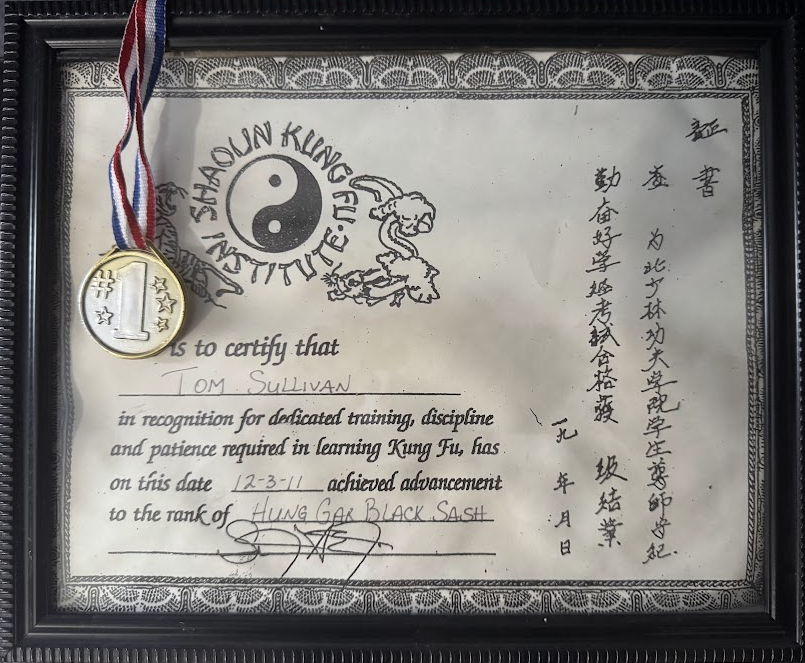 #1
SHAOLIN KUNG FU
INSTITUTE
is to certify that
TOM SULLIVAN
in recognition for dedicated training, discipline
and patience required in learning Kung Fu, has
on this date 12-3-11 achieved advancement
to the rank of HUNG GAR BLACK SASH
証書
查 为北少林功夫学院学生尊師守紀
勤奋好学经考試合格獲 级結業
一九 年 月 日